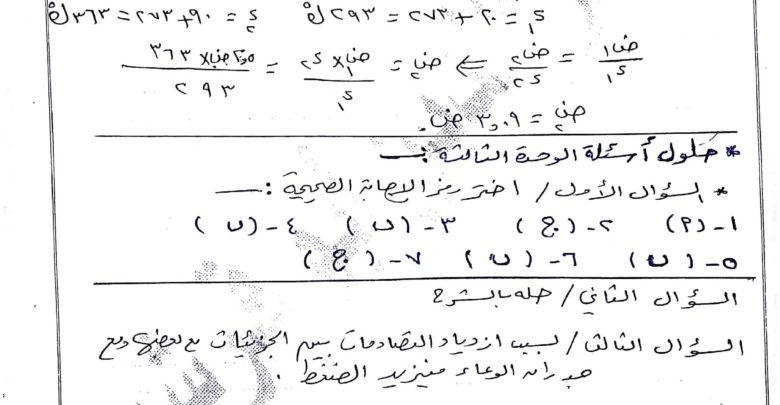 د١ = ٢٠ + ٢٧٣ = ٢٩٣ ك د٢ = ٩٠ + ٢٧٣ = ٣٦٣ ك
ض١/د١ = ض٢/د٢ ⇐ ض٢ = ض١ × د٢/د١ = ٢,٥ ض.جـ × ٣٦٣/٢٩٣
ض٢ = ٣,٠٩ ض.جـ
* حلول أسئلة الوحدة الثالثة :ـ
* السؤال الأول / اختر رمز الإجابة الصحيحة :ـ
١- (P) ٢- (ج) ٣- (ب) ٤- (ب)
٥- (ب) ٦- (ب) ٧- (ج)
السؤال الثاني / حله بالشرح
السؤال الثالث / بسبب ازدياد التصادمات بين الجزيئات مع بعضها ومع
جدران الوعاء فيزيد الضغط .